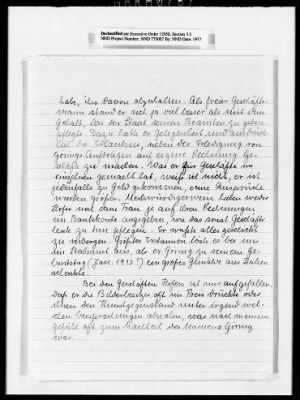 Declassified per Executive Order 12958, Section 3.5
NND Project Number: NND 775057 By: NND Date: 1977
habe, ihn davon abzuhalten. Als freier Geschäfts-
mann stand er sich ja viel besser als mit dem
Gehalt, das der Staat seinen Beamten zu geben
pflegte. Dazu hatte er Gelegenheit und ausdrück-
lich die Erlaubnis, neben der Erledigung von
Görings Aufträgen auf eigene Rechnung Ge-
schäfte zu machen. Was er für Geschäfte im
einzelnen gemacht hat, weiß ich nicht, er ist
jedenfalls zu Geld gekommen, seine Ansprüche
wurden größer. Merkwürdigerweise haben weder
Hofer und seine Frau je auf ihren Rechnungen
ein Bankkonto angegeben, wie das sonst Geschäfts-
leute zu tun pflegen. Er wußte alles geschickt
zu verbergen. Größtes Erstaunen löste es bei uns
im Stabsamt aus, als er Göring zu seinem Ge-
burtstag (Jan. 1943?) ein großes Gemälde aus Italien
schenkte.
Bei den Geschäften Hofers ist mir aufgefallen,
daß er die Bilderbesitzer oft im Preis drückte oder
ihnen den Kunstgegenstand unter irgend wel-
chen Versprechungen abnahm, was nach meinem
Gefühl oft zum Nachteil des Namens Göring
war.